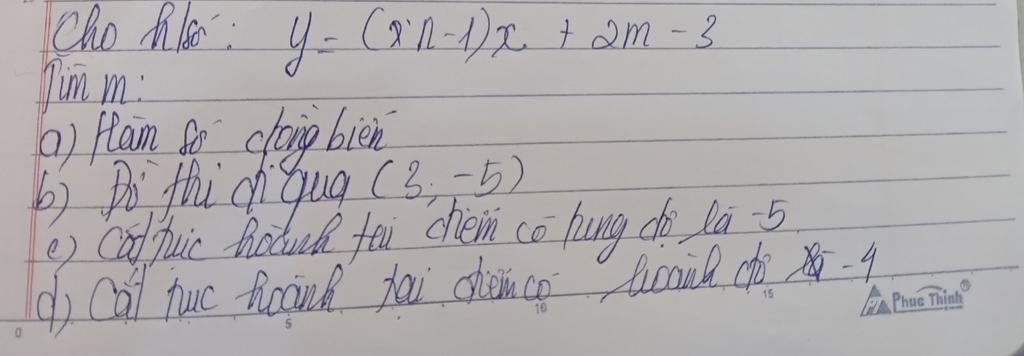 Cho h/số: y = (m-1)x + 2m - 3
Tìm m:
a) Hàm số đồng biến
b) Đồ thị đi qua (3; -5)
c) Cắt trục hoành tại điểm có tung độ là -5
d) Cắt trục hoành tại điểm có hoành độ là -4
Phuc Thinh®
0 5 10 15